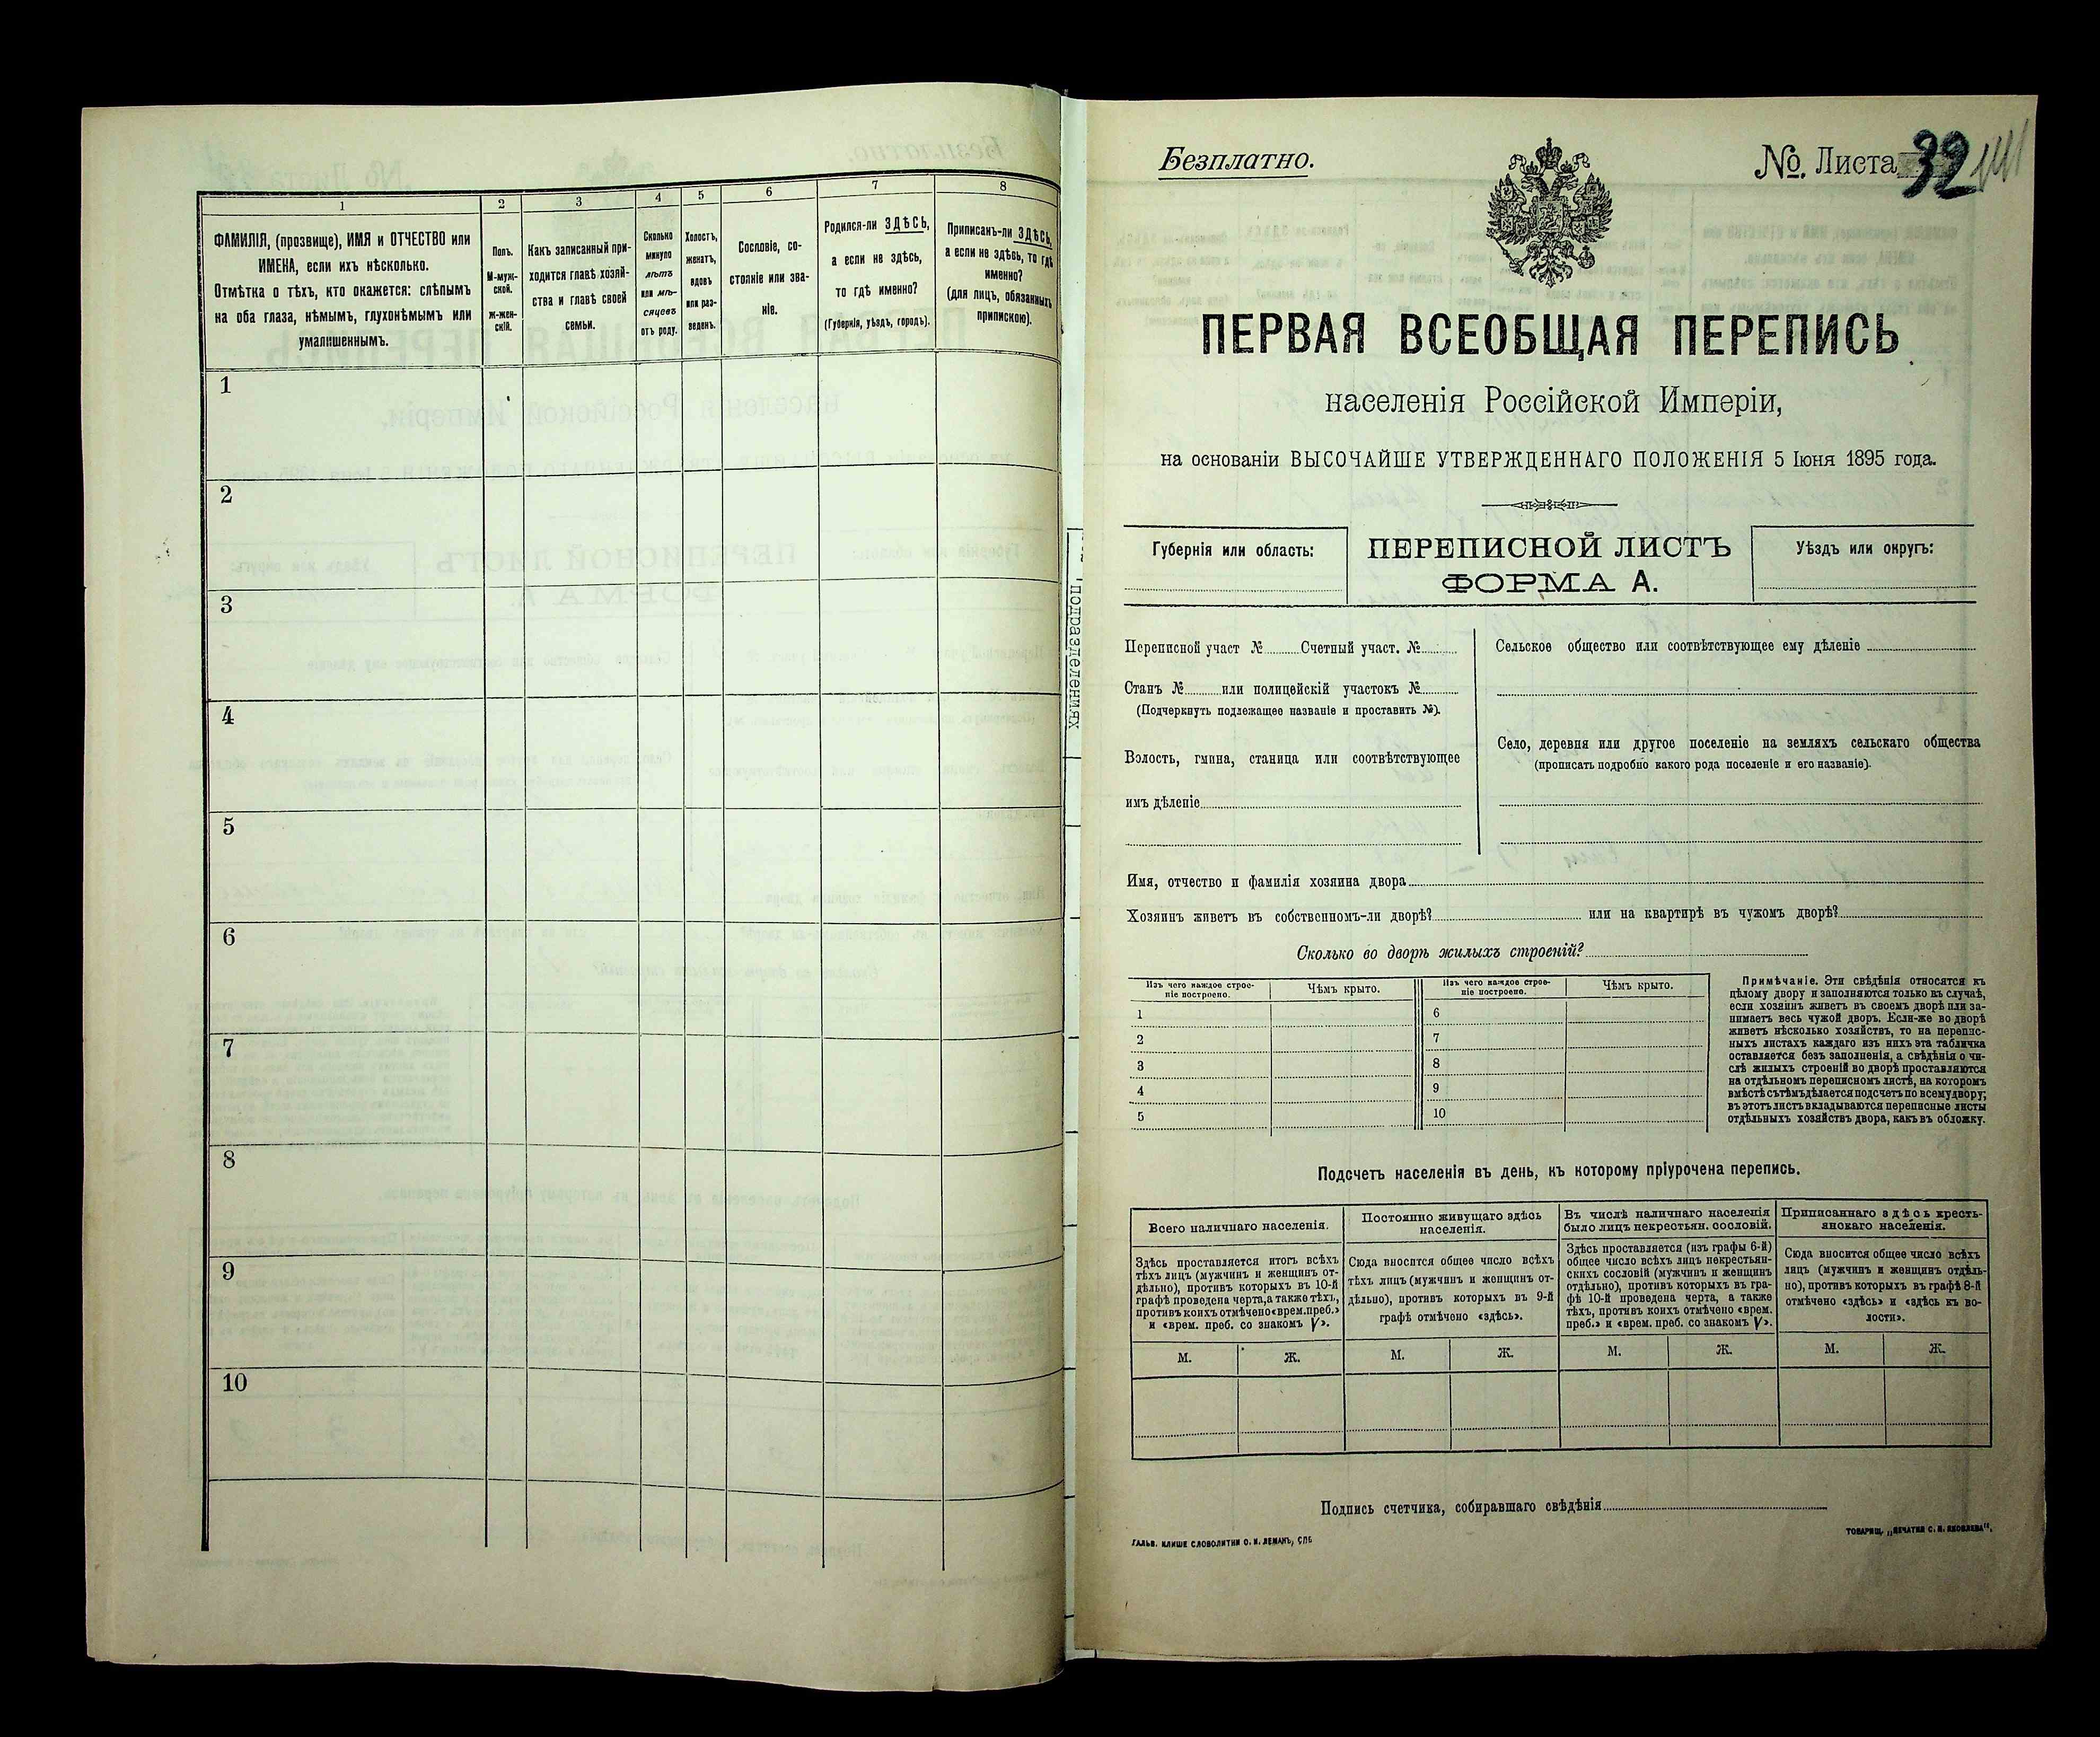 1
2
3
4
5
6
7
8
ФАМИЛІЯ, (прозвище), ИМЯ и ОТЧЕСТВО или
ИМЕНА, если ихъ нѣсколько.
Отмѣтка о тѣхъ, кто окажется: слѣпымъ
на оба глаза, нѣмымъ, глухонѣмымъ или
умалишеннымъ.
Полъ.
М-муж-
ской.
ж-жен-
скій.
Какъ записанный при-
ходится главѣ хозяй-
ства и главѣ своей
семьи.
Сколько
минуло
лѣтъ
или мѣ-
сяцевъ
отъ роду.
Холостъ,
женатъ,
вдовъ
или раз-
веденъ.
Сословіе, со-
стояніе или зва-
ніе.
Родился-ли ЗДѢСЬ,
а если не здѣсь,
то гдѣ именно?
(Губернія, уѣздъ, городъ).
Приписанъ-ли ЗДѢСЬ,
а если не здѣсь, то гдѣ
именно?
(для лицъ, обязанныхъ
припискою).
1
2
3
4
5
6
7
8
9
10
подраздѣленіяхъ
Безплатно.
№. Листа 32
ПЕРВАЯ ВСЕОБЩАЯ ПЕРЕПИСЬ
населенія Россійской Имперіи,
на основаніи ВЫСОЧАЙШЕ УТВЕРЖДЕННАГО ПОЛОЖЕНІЯ 5 Іюня 1895 года.
Губернія или область:
ПЕРЕПИСНОЙ ЛИСТЪ
ФОРМА А.
Уѣздъ или округъ:
Переписной участ № Счетный участ. №
Станъ № или полицейскій участокъ №
(Подчеркнуть подлежащее названіе и проставить №).
Волость, гмина, станица или соотвѣтствующее
имъ дѣленіе
Сельское общество или соотвѣтствующее ему дѣленіе
Село, деревня или другое поселеніе на земляхъ сельскаго общества
(прописать подробно какого рода поселеніе и его названіе).
Имя, отчество и фамилія хозяина двора
Хозяинъ живетъ въ собственномъ-ли дворѣ? или на квартирѣ въ чужомъ дворѣ?
Сколько во дворѣ жилыхъ строеній?
Изъ чего каждое строе-
ніе построено.
Чѣмъ крыто.
Изъ чего каждое строе-
ніе построено.
Чѣмъ крыто.
1
2
3
4
5
6
7
8
9
10
Примѣчаніе. Эти свѣдѣнія относятся къ
цѣлому двору и заполняются только въ случаѣ,
если хозяинъ живетъ въ своемъ дворѣ или за-
нимаетъ весь чужой дворъ. Если-же во дворѣ
живетъ нѣсколько хозяйствъ, то на перепис-
ныхъ листахъ каждаго изъ нихъ эта табличка
оставляется безъ заполненія, а свѣдѣнія о чи-
слѣ жилыхъ строеній во дворѣ проставляются
на отдѣльномъ переписномъ листѣ, на которомъ
вмѣстѣ съ тѣмъ дѣлается подсчетъ по всему двору;
въ этотъ листъ вкладываются переписные листы
отдѣльныхъ хозяйствъ двора, какъ въ обложку.
Подсчетъ населенія въ день, къ которому пріурочена перепись.
Всего наличнаго населенія.
Здѣсь проставляется итогъ всѣхъ
тѣхъ лицъ (мужчинъ и женщинъ от-
дѣльно), противъ которыхъ въ 10-й
графѣ проведена черта, а также тѣхъ,
противъ коихъ отмѣчено «врем. преб.»
и «врем. преб. со знакомъ V».
Постоянно живущаго здѣсь
населенія.
Сюда вносится общее число всѣхъ
тѣхъ лицъ (мужчинъ и женщинъ от-
дѣльно), противъ которыхъ въ 9-й
графѣ отмѣчено «здѣсь».
Въ числѣ наличнаго населенія
было лицъ некрестьян. сословій.
Здѣсь проставляется (изъ графы 6-й)
общее число всѣхъ лицъ некрестьян-
скихъ сословій (мужчинъ и женщинъ
отдѣльно), противъ которыхъ въ гра-
фѣ 10-й проведена черта, а также
тѣхъ, противъ коихъ отмѣчено «врем.
преб.» и «врем. преб. со знакомъ V».
Приписаннаго здѣсь кресть-
янскаго населенія.
Сюда вносится общее число всѣхъ
лицъ (мужчинъ и женщинъ отдѣль-
но), противъ которыхъ въ графѣ 8-й
отмѣчено «здѣсь» и «здѣсь къ во-
лости».
М. Ж. М. Ж. М. Ж. М. Ж.
Подпись счетчика, собиравшаго свѣдѣнія
ГАЛЬВ. КЛИШЕ СЛОВОЛИТНИ О. И. ЛЕМАНЪ, СПБ
ТОВАРИЩ. „ПЕЧАТНЯ С. П. ЯКОВЛЕВА".